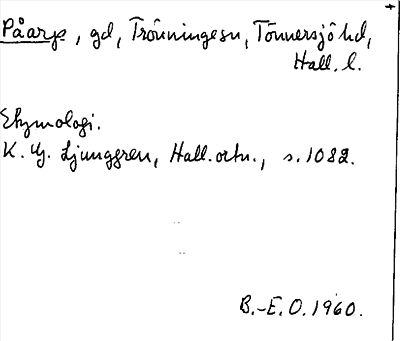 Påarp, gd, Trönningesn, Tönnersjö hd,
Hall. l.
Etymologi.
K. G. Ljunggren, Hall. ortn., s. 1082.
B.-E. O. 1960.